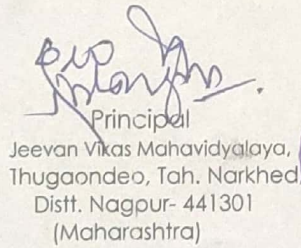 Principal
Jeevan Vikas Mahavidyalaya,
Thugaondeo, Tah. Narkhed
Distt. Nagpur- 441301
(Maharashtra)